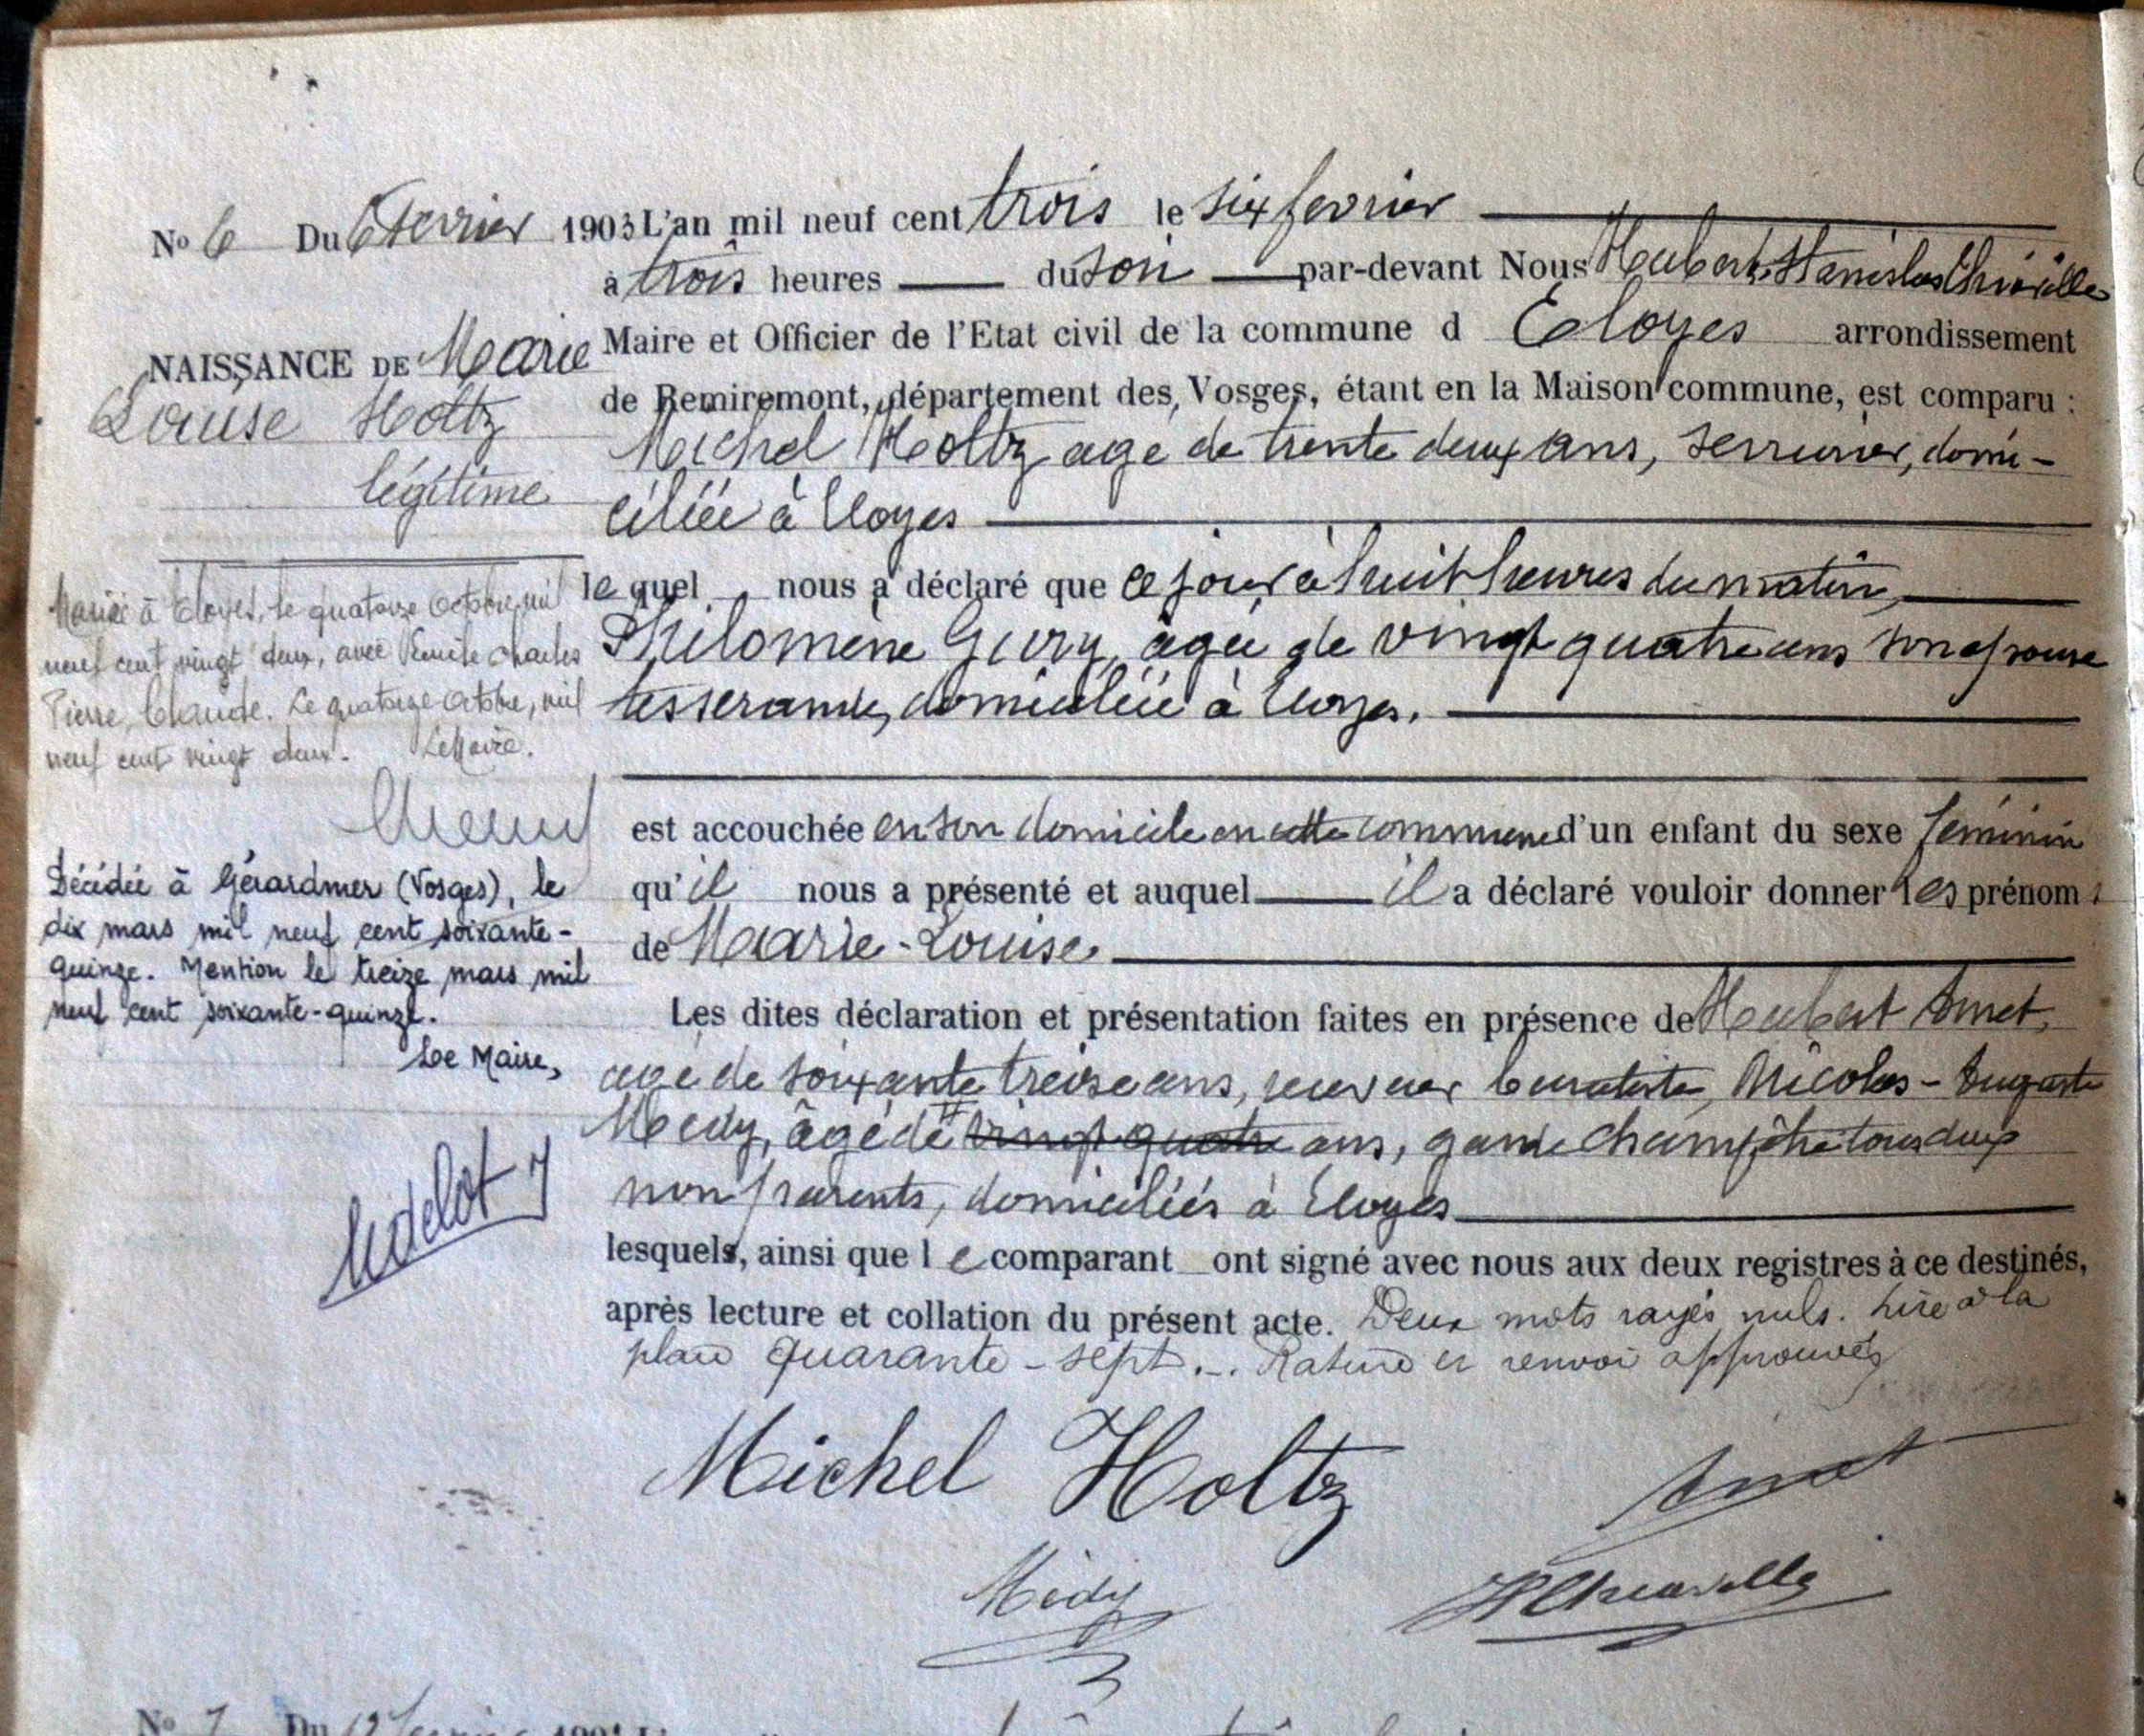 No 6 Du 6 fevrier 1903
NAISSANCE DE Marie
Louise Holtz
légitime
Mariée à Eloyes, le quatorze Octobre, mil
neuf cent vingt deux, avec Emile Charles
Pierre, Claude. Le quatorze Octobre, mil
neuf cent vingt deux. Le Maire.
Décédée à Gérardmer (Vosges), le
dix mars mil neuf cent soixante-
quinze. Mention le treize mars mil
neuf cent soixante-quinze.
Le Maire,
L'an mil neuf cent trois le six fevrier
à trois heures du soir par-devant Nous Hubert, Stanislas
Maire et Officier de l'Etat civil de la commune d Eloyes arrondissement
de Remiremont, département des Vosges, étant en la Maison commune, est comparu :
Michel Holtz agé de trente deux ans, serrurier, domi-
ciliée à Eloyes
le quel nous a déclaré que ce jour à huit heures du matin,
Philomène Giury, agée de vingt quatre ans son épouse
tisserande, domiciliée à Eloyes.
est accouchée en son domicile en cette commune d'un enfant du sexe féminin
qu'il nous a présenté et auquel il a déclaré vouloir donner les prénoms
de Marie-Louise
Les dites déclaration et présentation faites en présence de Hubert Amet,
agé de soixante treize ans, receveur buraliste, Nicolas-Auguste
Médy, âgé de vingt quatre ans, garde champêtre tous deux
non parents, domiciliés à Eloyes
lesquels, ainsi que le comparant ont signé avec nous aux deux registres à ce destinés,
après lecture et collation du présent acte. Deux mots rayés nuls. Lire à la
place quarante-sept.-. Rature et renvoi approuvés
Michel Holtz
Amet
Médy
No 7 Du 12 fevrier